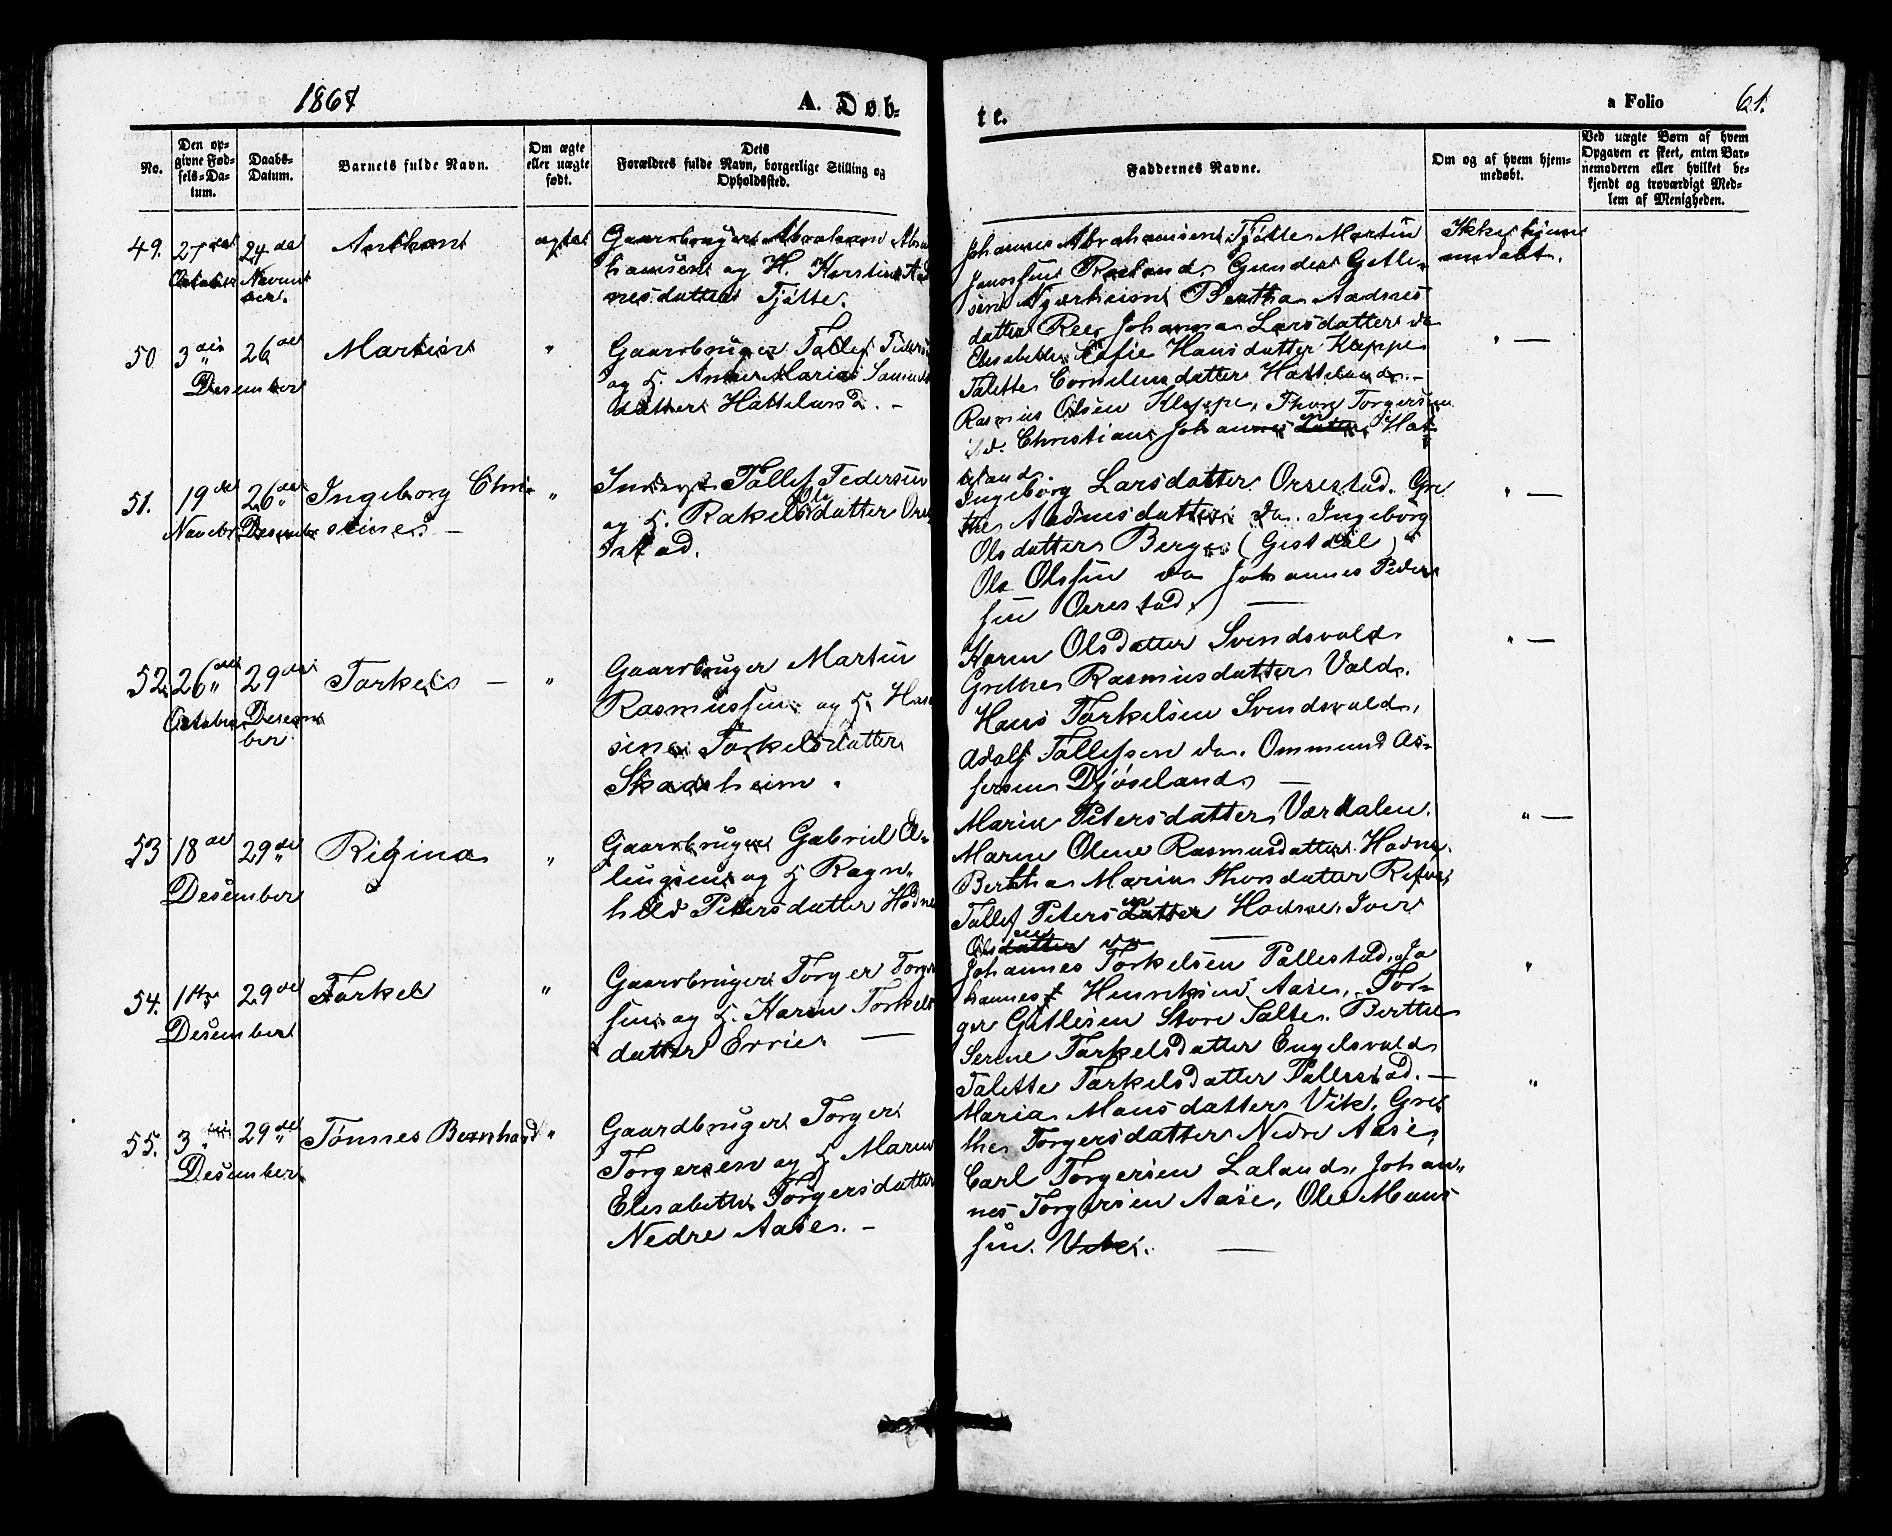 1867
A. Døb-
te.
a Folio 61.
No.
Den op-
givne Fød-
sels-Da-
tum.
Daabs-
Datum.
Barnets fulde Navn.
Om ægte
eller uægte
født.
Dets
Forældres fulde Navn, borgerlige Stilling og
Opholdssted.
Faddernes Navne.
Om og af hvem hjem-
medøbt.
Ved uægte Børn af hvem
Opgaven er skeet, enten Bar-
nemoderen eller hvilket be-
kjendt og troværdigt Med-
lem af Menigheden.
49.
27
October
24
Novem
ber.
Anthon
ægte
Gaardbruger Abraham Abra
hamsen og H. Karstine Aad
nesdatter Tjøtte.
Johannes Abrahamsen Tjøtte Martin
Gunder Gitle-
sen Njærheim Bertha Aadnes
datter Ree, Johanna Larsdatter do
Ikke hjem
medøbt.
50
3
Desember
26
Martin
"
Gaardbruger Tollef Peders
og H. Anne Maria
datter Hatteland. -
Elisabeth Sofie Hansdatter Kleppe
Talette Corneliusdatter Hatteland. -
Rasmus Olsen Kleppe, Thore Torgersen
do. Christian Johannesen Hat
teland.
" —
51.
19
Novebr
26
Desembr
Ingeborg Chri-
stine -
"
Tollef Pedersen
og H. Rakel Olsdatter Orre
stad.
Ingeborg Larsdatter Orrestad. Gre
the Aadnesdatter do. Ingeborg
Olsdatter Berge (Gistdal)
Ole Olsen do Johannes Peder
sen Orrestad. —
" —
52
26
October
29
Desem
ber
Torkel -
"
Gaardbruger Martin
Rasmussen og H. Han
sine Torkelsdatter
Skadsheim.
Karen Olsdatter Svendsvold
Grethe Rasmusdatter Vold.
Hans Torkelsen Svendsvold,
Adolf Tollefsen do. Ommund As-
sersen Djøseland —
" —
53
18
Desember
29
Regina
"
Gaardbruger Gabriel El-
lingsen og H Ragn-
hild Petersdatter Hodne
Maria Petersdatter Værdalen.
Maren Olene Rasmusdatter Hodne.
Bertha Maria Thorsdatter Refve
Tollef Petersen Hodne, Iver
Olsen do —
" —
54.
1ste
Desember
29
Torkel
"
Gaardbruger Torger Torger
sen og H. Karen Torkels
datter Errie. —
Johannes Torkelsen Pallestad, Jo
hannes Henriksen Aase, Tor-
ger Gitlesen Store Salte. Berthe
Serine Torkelsdatter Engelsvold
Talette Torkelsdatter Pallestad. —
"
55.
3
Desember
29
Tønnes Bernhard
"
Gaardbruger Torger
Torgersen og H Maren
Elisabeth Torgersdatter
Nedre Aase. -
Maria Mansdatter Vik, Gre
the Torgersdatter Nedre Aase,
Carl Torgersen Laland, Johan-
nes Torgersen Aase, Ole Mans
sen. —
"